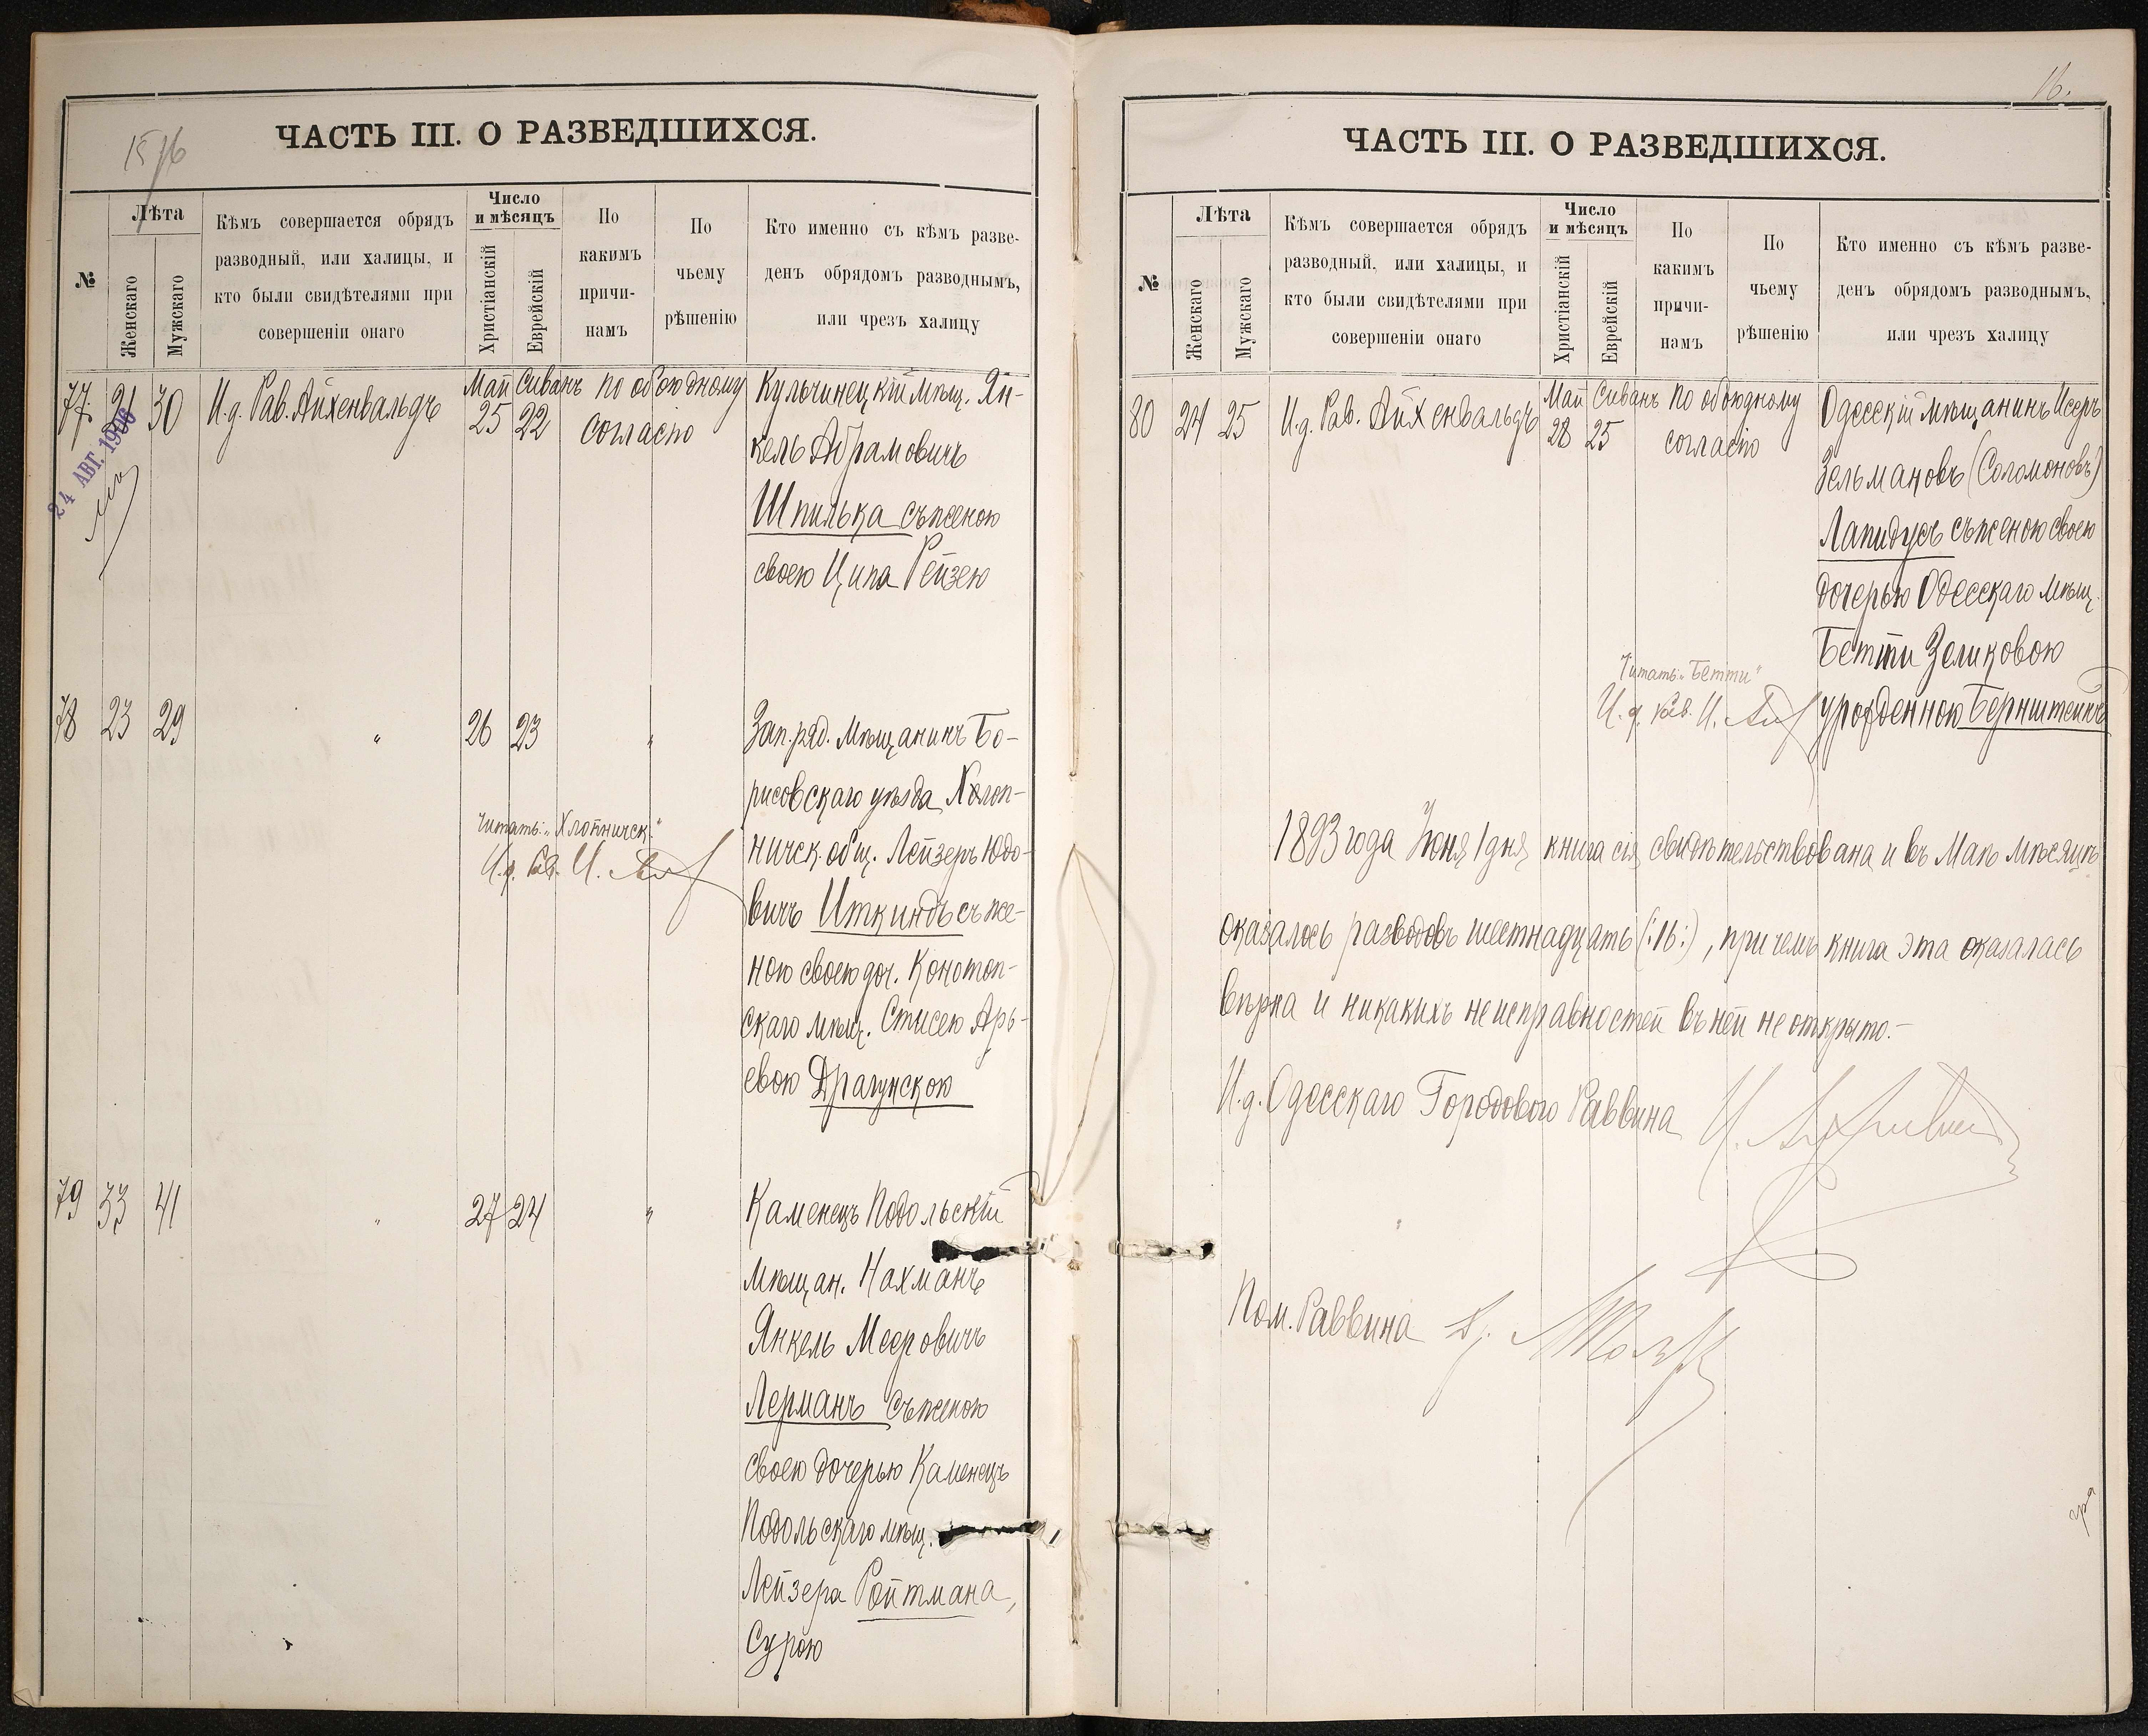 15/16
ЧАСТЬ III. О РАЗВЕДШИХСЯ.
№
Лѣта
Женскаго
Мужскаго
Кѣмъ совершается обрядъ
разводный, или халицы, и
кто были свидѣтелями при
совершеніи онаго
Число
и мѣсяцъ
Христіанскій
Еврейскій
По
какимъ
причи-
намъ
По
чьему
рѣшенію
Кто именно съ кѣмъ разве-
денъ обрядомъ разводнымъ,
или чрезъ халицу
77. 21 30 И.д. Рав. Айхенвальдъ Май Сиванъ по обоюдному
25 22 согласію
24 АВГ. 1906
Кульчинецкій мѣщ. Ян-
кель Абрамовичъ
Шпилька съ женою
своею Ципа Рейзею
78 23 29 " 26 23 "
Зап. ряд. мѣщанинъ Бо-
рисовскаго уѣзда Холоп-
ничск. общ. Лейзеръ Юдо-
вичъ Иткиндъ съ же-
ною своею доч. Конотоп-
скаго мѣщ. Стисею Арь-
евою Драгунскою
Читать: "Хлопничск."
И.д. Рав. И.
79 33 41 " 27 24 "
Каменецъ Подольскій
мѣщан. Нахманъ
Янкель Мееровичъ
Лерманъ съ женою
своею дочерью Каменецъ
Подольскаго мѣщ.
Лейзера Ройтмана,
Сурою
16.
ЧАСТЬ III. О РАЗВЕДШИХСЯ.
№
Лѣта
Женскаго
Мужскаго
Кѣмъ совершается обрядъ
разводный, или халицы, и
кто были свидѣтелями при
совершеніи онаго
Число
и мѣсяцъ
Христіанскій
Еврейскій
По
какимъ
причи-
намъ
По
чьему
рѣшенію
Кто именно съ кѣмъ разве-
денъ обрядомъ разводнымъ,
или чрезъ халицу
80 24 25 И.д. Рав. Айхенвальдъ Май Сиванъ по обоюдному
28 25 согласію
Одесскій мѣщанинъ Исеръ
Зельмановъ (Соломоновъ)
Лапидусъ съ женою своею
дочерью Одесскаго мѣщ.
Бетти Зеликовою
урожденною Бернштейнъ
Читать: "Бетти"
И.д. Рав. И.
1893 года Іюня 1 дня книга сія свидѣтельствована и въ Маѣ мѣсяцѣ
оказалось разводовъ шестнадцать (:16:), при чемъ книга эта оказалась
вѣрна и никакихъ неисправностей въ ней не открыто.-
И.д. Одесскаго Городового Раввина И.
Пом. Раввина